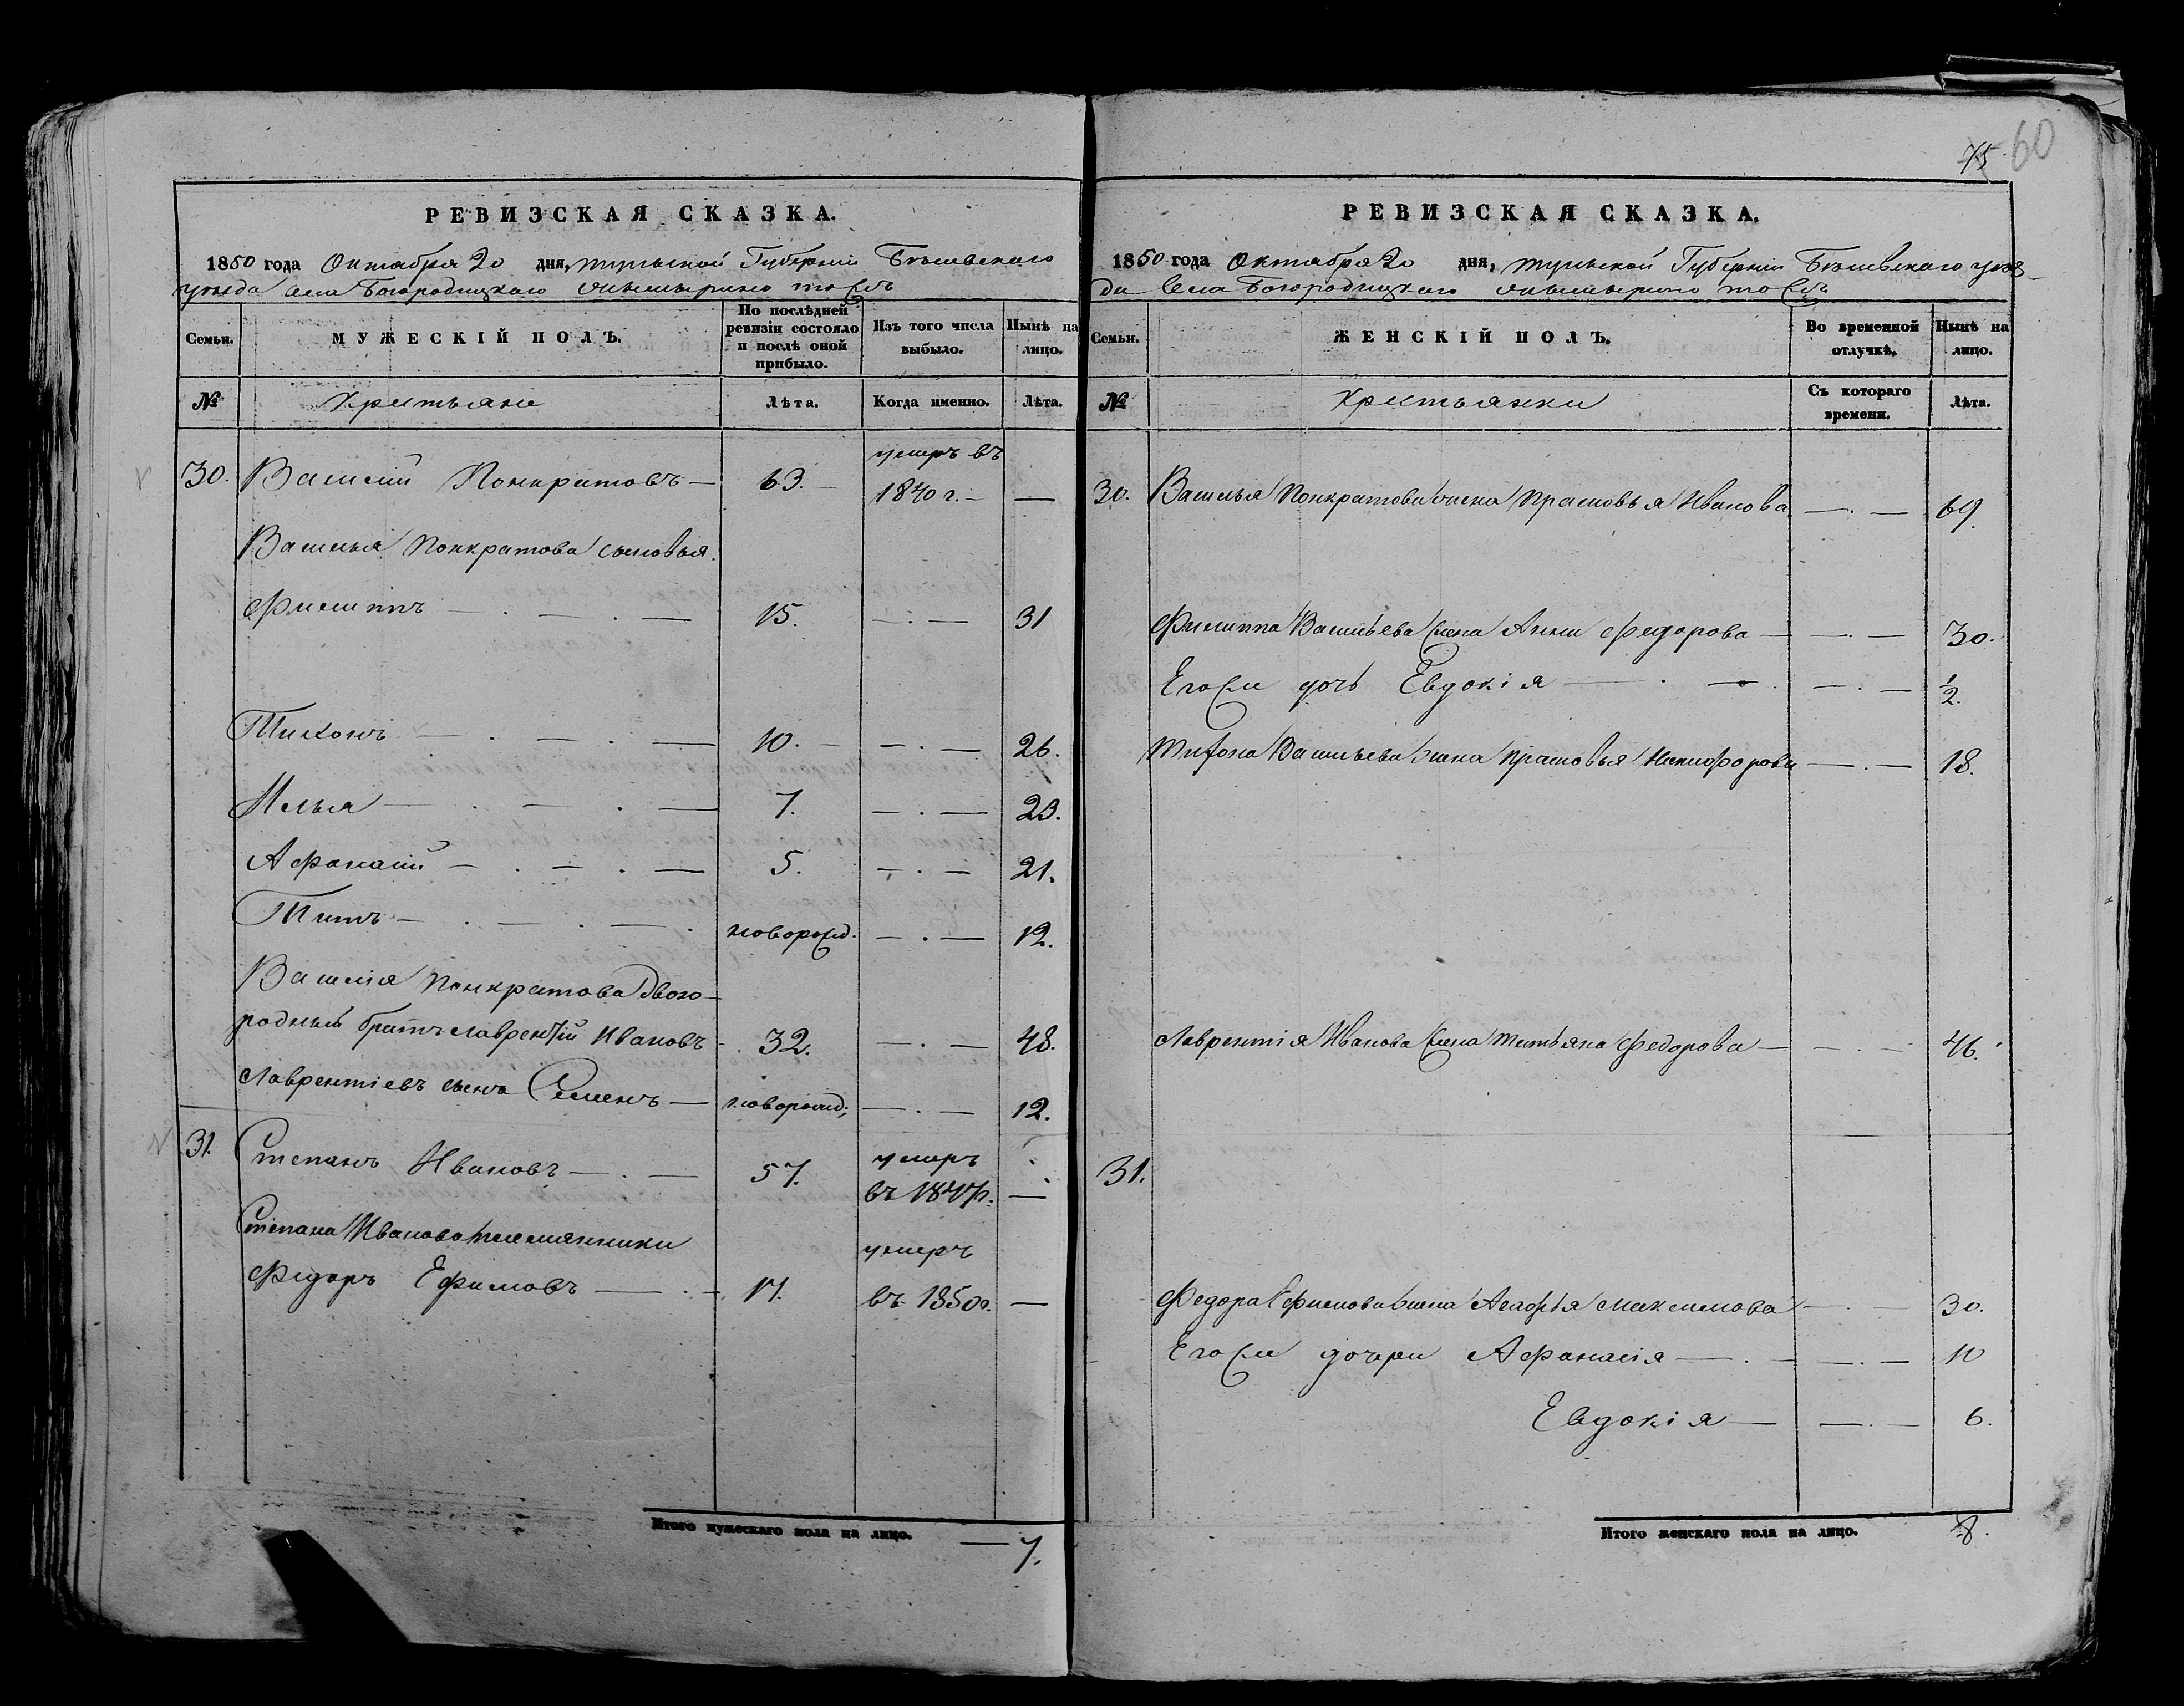 75 60
РЕВИЗСКАЯ СКАЗКА.
1850 года Октября 20 дня, Тульской Губерніи Бѣлевскаго
уѣзда села Богородицкаго тожъ
Семьи. МУЖЕСКІЙ ПОЛЪ. По послѣдней ревизіи состояло и послѣ оной прибыло. Изъ того числа выбыло. Нынѣ на лицо.
№ Крестьяне Лѣта. Когда именно. Лѣта.
умеръ въ
30. Василій Понкратовъ — 63. — 1840 г. — —
Василья Понкратова сыновья.
Филиппъ — . — . — 15. — . — 31
Тихонъ — . — . — 10. — — . — 26.
Илья — . — . — 7. — . — 23.
Афанасій — . — . — 5. — . — 21.
Титъ — . — . — . новорожд. — . — 12.
Василія Понкратова двою-
родный братъ Лаврентій Ивановъ — 32. — . — 48.
Лаврентіевъ сынъ Семенъ — новорожд; — . — 12.
31. Степанъ Ивановъ — . — 57. умеръ
въ 1847 г. —
Степана Иванова племянники умеръ
Федоръ Ефимовъ — . — 17. въ 1850 г. —
Итого мужескаго пола на лицо. — 7.
РЕВИЗСКАЯ СКАЗКА.
1850 года Октября 20 дня, Тульской Губерніи Бѣлевскаго уѣз-
да Села Богородицкаго тожъ
Семьи. ЖЕНСКІЙ ПОЛЪ. Во временной отлучкѣ. Нынѣ на лицо.
№ Крестьянки Съ котораго времени. Лѣта.
30. Василья Понкратова жена Прасковья Иванова — . — 69.
Филиппа Васильева жена Анна Федорова — — . — 30.
Его же дочь Евдокія — . — . — . — 1/2.
Тихона Васильева жена Прасковья Никифорова — . — 18.
Лаврентія Иванова жена Татьяна Федорова — — . — 46.
31.
Федора Ефимова жена Агафья Максимова — . — 30.
Его же дочери Афанасія — . — — . — 10
Евдокія — — . — 6.
Итого женскаго пола на лицо. 8.